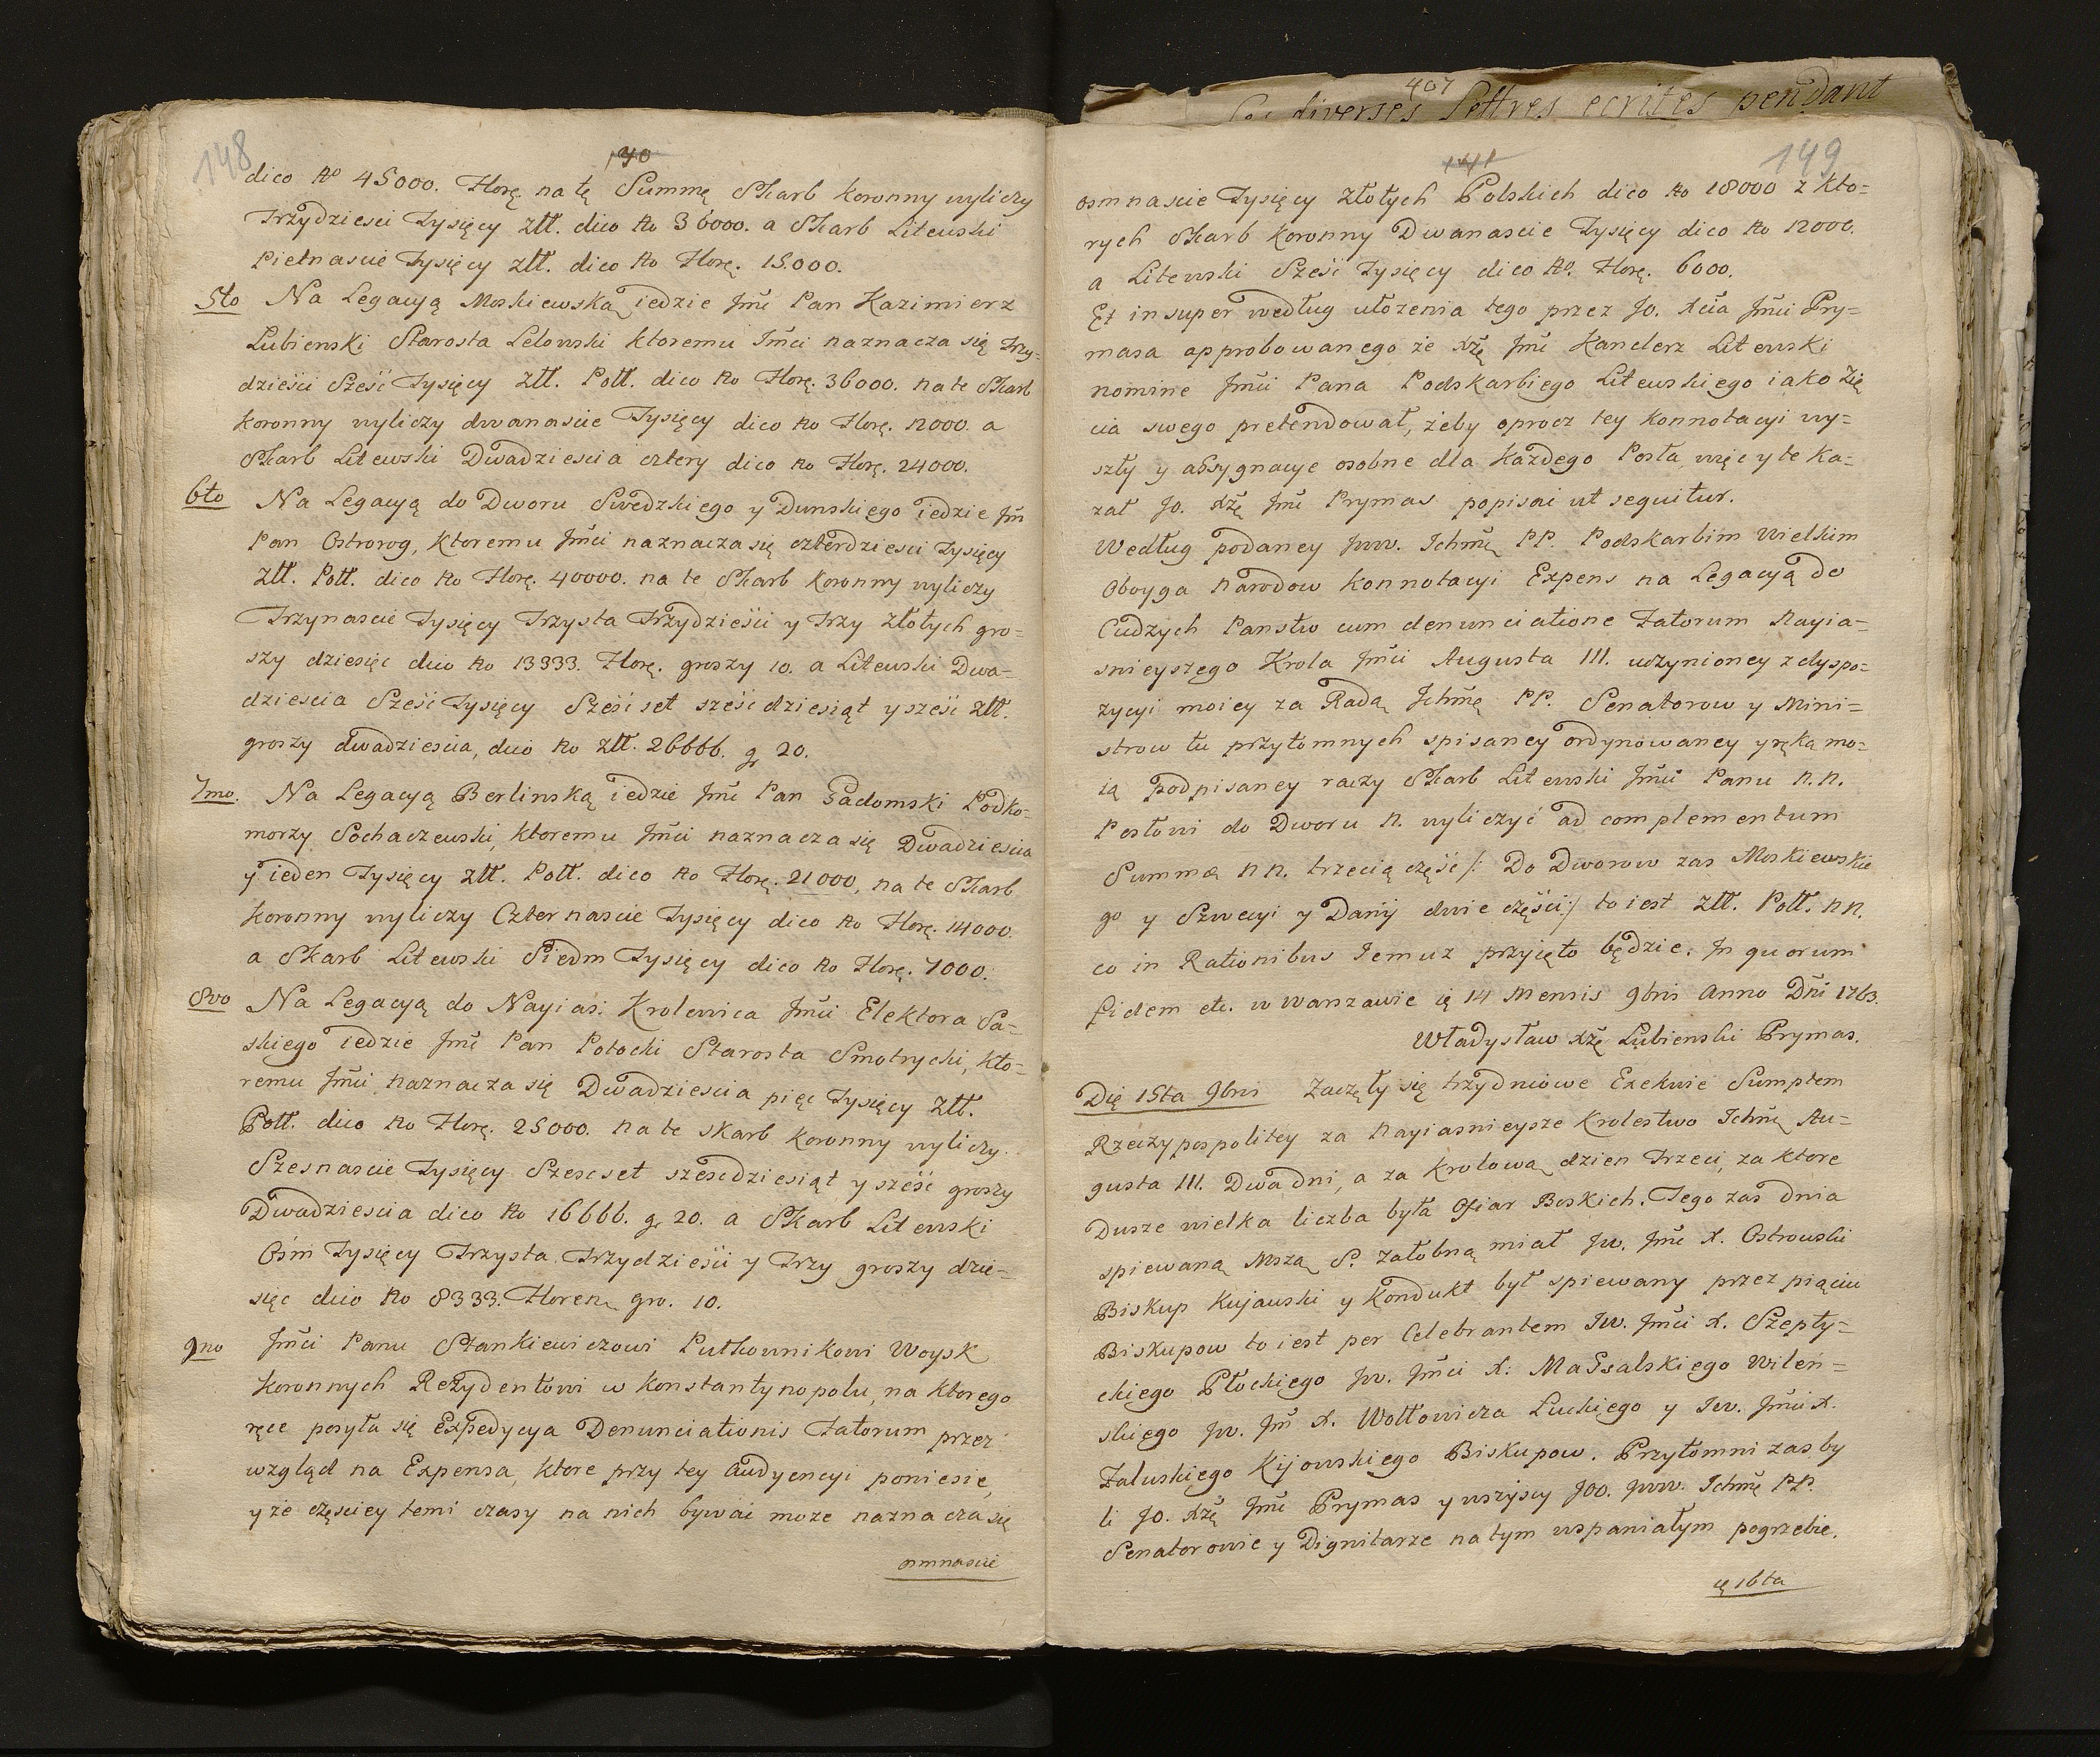 148
140
dico No 45000. Florę. na tę Summę Skarb koronny wyliczy
Trzydziesci Tysięcy Złł. dico No 30000. a Skarb Litewski
Pietnascie Tysięcy złł. dico No Florę. 15.000.
5to Na Legacyą Moskiewską iedzie Jmć Pan Kazimierz
Lubienski Starosta Lelowski ktoremu Jmci naznacza się trzy=
dzieści Sześć Tysięcy Złł. Poll. dico No Florę. 36000. na te Skarb
koronny wyliczy dwanascie Tysięcy dico No Florę. 12000. a
Skarb Litewski Dwadziescia cztery dico No Florę. 24000.
6to Na Legacyą do Dworu Swedzkiego y Dunskiego iedzie Jm
Pan Ostrorog, ktoremu Jmći naznacza się czterdziesci Tysięcy
Złł. Poll. dico No Florę. 40000. na te Skarb koronny wyliczy
Trzynascie Tysięcy Trzysta Trzydzieści y Trzy Złotych gro=
szy dziesięc dico No 13333. Florę. groszy 10. a Litewski Dwa=
dziescia Sześć Tysięcy Sześć set sześćdziesiąt y sześć złł.
groszy dwadziescia, dico No złł. 26666. gr 20.
7mo. Na Legacyą Berlinską iedzie Jmć Pan Gadomski Podko=
morzy Sochaczewski, ktoremu Jmći naznacza się Dwadziescia
y ieden Tysięcy złł. Poll. dico No Florę. 21000, na te Skarb
koronny wyliczy Czternascie Tysięcy dico No Florę. 14000.
a Skarb Litewski Siedm Tysięcy dico No Florę. 7000.
8vo Na Legacyą do Nayias: Krolewica Jmći Elektora Sa=
skiego iedzie Jmć Pan Potocki Starosta Smotrycki, kto=
remu Jmći naznacza się Dwadziescia pięc Tysięcy Złł.
Poll. dico No Florę. 25000. na te skarb koronny wyliczy
Szesnascie Tysięcy Szescset szescdziesiąt y sześć groszy
Dwadziescia dico No 16666. gr 20. a Skarb Litewski
Ośm Tysięcy Trzysta Trzydzieści y Trzy groszy dzie=
sięc dico No 8333. Floren. gro. 10.
9no Jmći Panu Stankiewiczowi Pułkownikowi Woysk
Koronnych Rezydentowi w Konstantynopolu, na ktorego
ręce posyła się Expedycya Denunciationis Fatorum przez
wzgląd na Expensa, ktore przy tey Audyencyi poniesie,
y że częsciey temi czasy na nich bywać moze naznacza się
osmnascie
407
diverses Lettres ecrites pendant
141
149
osmnascie Tysięcy złotych Polskich dico No 18000 z kto=
rych Skarb koronny Dwanascie Tysięcy dico No 12000.
a Litewski Sześć Tysięcy dico No. Florę. 6000.
Et insuper według ułozenia tego przez Jo. Xcia Jmći Pry=
masa approbowanego że Xżę Jmć Kanclerz Litewski
nomine Jmći Pana Podskarbiego Litewskiego iako Zię
cia swego pretendował, żeby oprocz tey konnotacyi wy=
szły y assygnacye osobne dla każdego Posła, więc y te ka=
zał Jo. Xżę Jmć Prymas popisać ut sequitur.
Według podaney Jww. Ichmę PP. Podskarbim Wielkim
Oboyga Narodow konnotacyi Expens na Legacyą do
Cudzych Panstw cum denunciatione Fatorum Nayia=
snieyszego Krola Jmći Augusta III. uczynioney z dyspo=
zycyi moiey za Radą Ichmę PP. Senatorow y Mini=
strow tu przytomnych spisaney ordynowaney y ręką mo=
ią podpisaney raczy Skarb Litewski Jmći Panu N.N.
Posłowi do Dworu N. wyliczyć ad complementum
Summą NN. trzecią część /: Do Dworow zas Moskiewskie
go y Szwecyi y Danij dwie części:/ to iest złł. Poll. NN.
co in Rationibus Jemuz przyięto będzie. In quorum
fidem etc. w Warszawie ię 14 Mensis 9bris Anno Dni 1763.
Władysław Xżę Łubienski Prymas.
Dię 15ta 9bris Zaczęły się trzydniowe Exekwie Sumptem
Rzeczypospolitey za Nayiasnieysze Krolestwo Ichmę Au=
gusta III. Dwa dni, a za krolową dzien trzeci, za ktore
Dusze wielka liczba była Ofiar Boskich. Tego zas dnia
spiewaną Mszą S. żałobną miał Jw. Jmć X. Ostrowski
Biskup Kujawski y Kondukt był spiewany przez piąciu
Biskupow to iest per Celebrantem Jw. Jmći X. Szepty=
ckiego Płockiego Jw. Jmći X: Massalskiego Wileń=
skiego Jw. Jm X. Wołłowicza Luckiego y Jw. Jmći X.
Załuskiego Kijowskiego Biskupow. Przytomni zas by
li Jo. Xżę Jmć Prymas y wszyscy JOO. Jww. Ichmę PP.
Senatorowie y Dignitarze na tym wspaniałym pogrzebie.
ię 16ta